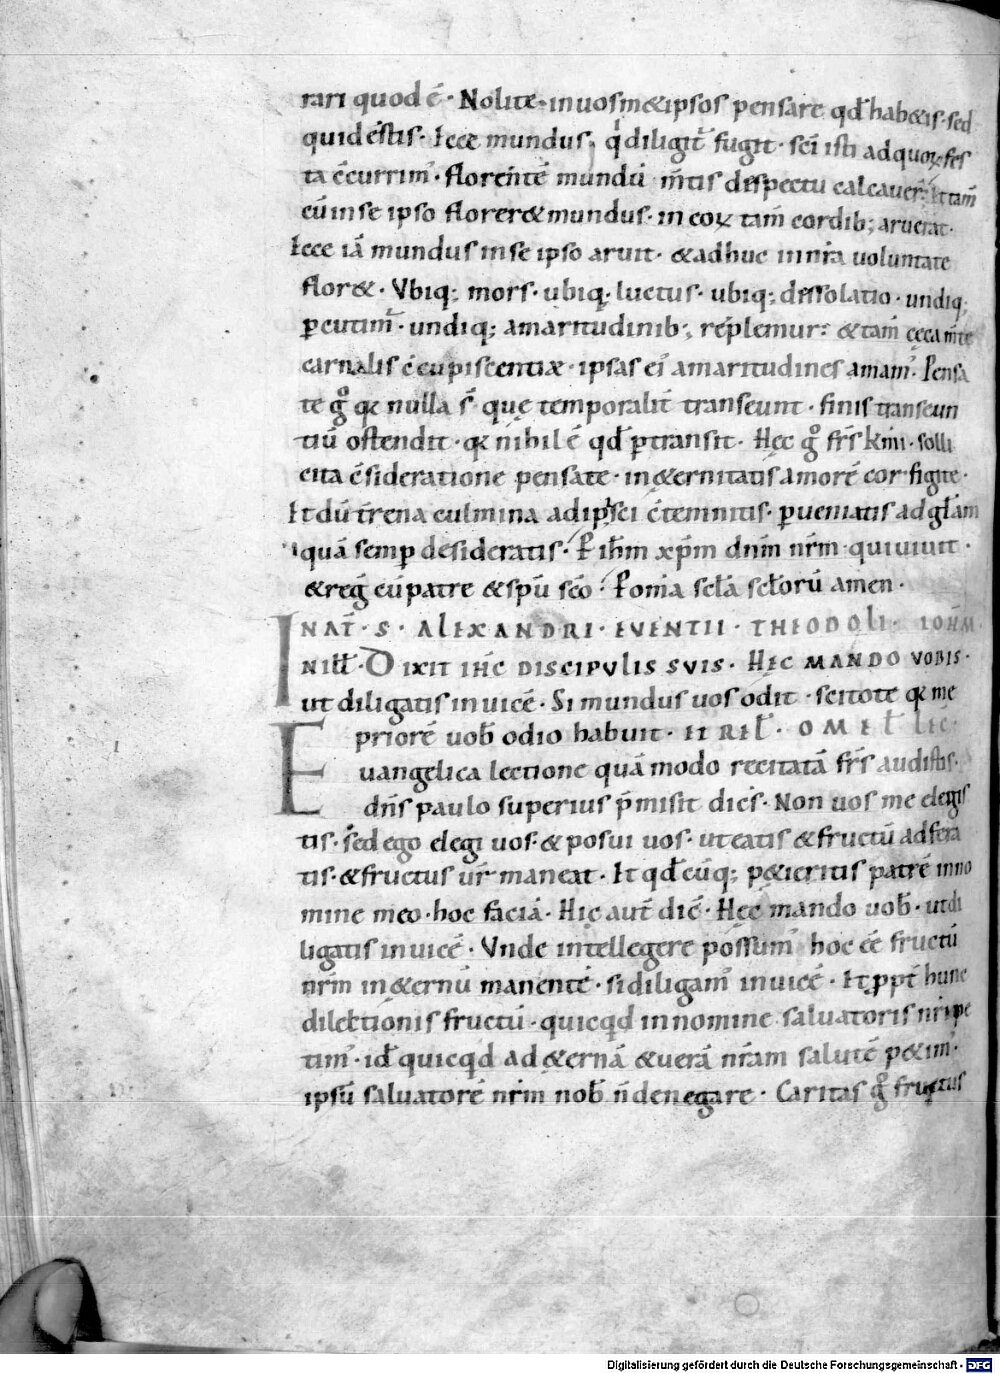 rari quod ē · Nolite · in uosm&ipsos pensare qđ hab&is · sed
quid estis · Ecce mundus · qđ diligit̄ fugit · sc̄i isti ad quoꝝ fes
ta c̄currim᾽ · florentē mundū m̄tis despectu calcauer̄ · Et tam̄
cū in se ipso florer& mundus · in eoꝝ tam̄ cordib; aruerat ·
Ecce iā mundus in se ipso aruit · & adhuc in nr̄a uoluntate
flor& · Vbiq; mors · ubiq; luctus · ubiq; dissolatio · undiq;
ꝑcutim᾽ · undiq; amaritudinib; replemur · & tam̄ cęca m̄te
carnalis c̄cupiscentiæ · ipsas ei᾽ amaritudines amam᾽ · Pensa
te gͦ qꝛ nulla s̄ · quę temporalit̄ transeunt · finis transeun
tiū ostendit · qꝛ nihil ē qđ ꝑtransit · Hęc gͦ fr̄s k̄mi · solli
cita c̄sideratione pensate · in &ernitatis amorē cor figite ·
Et dū t̄rena culmina adipisci c̄temnitis · ꝑueniatis ad gl̄am
quā semp desideratis · P ih̄m xp̄m dn̄m nr̄m qui uiuit ·
& reḡ cū patre & sp̄u sc̄o · P om̄ia scl̄a scl̄orū amen ·
IN NAT̄ · S · ALEXANDRI · EVENTII · THEODOLI · IOHM̄
IN ILL̄ · DIXIT IHC̄ DISCIPVLIS SVIS · HĘC MANDO VOBIS ·
ut diligatis inuicē · Si mundus uos odit · scitote qꝛ me
priorē uob̄ odio habuit · ET REL̄ · OMEL̄ LEC̄ ·
Euangelica lectione quā modo recitatā fr̄s audistis ·
dn̄s paulo superius p̄misit dicēs · Non uos me elegis
tis · sed ego elegi uos · & posui uos · ut eatis & fructū adfera
tis · & fructus ur̄ maneat · Et qđ cūq; p&ieritis patrē in no
mine meo · hoc faciā · Hic aut̄ dic̄ · Hęc mando uob̄ · ut di
ligatis inuicē · Vnde intellegere possum᾽ hoc eē fructū
nr̄m in &ernū manentē · si diligam᾽ inuicē · Et ꝓpt̄ hunc
dilectionis fructū · quicqđ in nomine saluatoris nr̄i pe
tim᾽ · id̄ quicqđ ad &ernā & uerā nr̄am salutē p&im᾽ ·
ipsū saluatorē nr̄m nob̄ n̄ denegare · Caritas gͦ fructus
Digitalisierung gefördert durch die Deutsche Forschungsgemeinschaft - DFG